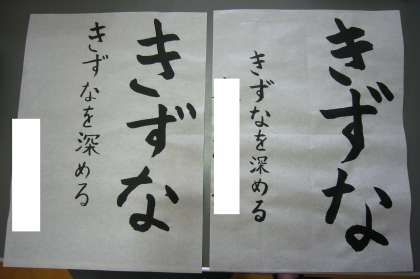 きずな
きずなを深める
きずな
きずなを深める